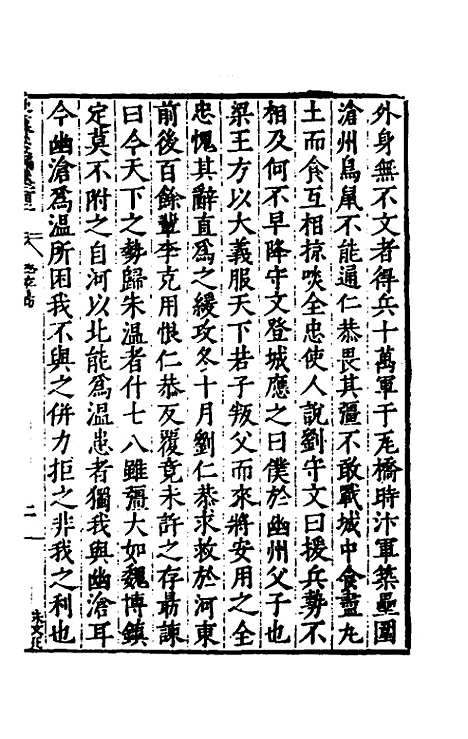 外身無不文者得兵十萬軍于瓦橋時汴軍築壘圍
滄州鳥鼠不能通仁恭畏其彊不敢戰城中食盡丸
土而食互相掠啖全忠使人說劉守文曰援兵勢不
相及何不早降守文登城應之曰僕於幽州父子也
梁王方以大義服天下若子叛父而來將安用之全
忠愧其辭直爲之緩攻冬十月劉仁恭求救於河東
前後百餘輩李克用恨仁恭反覆竟未許之存勗諫
曰今天下之勢歸朱溫者什七八雖彊大如魏博鎮
定莫不附之自河以北能爲溫患者獨我與幽滄耳
今幽滄爲溫所困我不與之併力拒之非我之利也
二